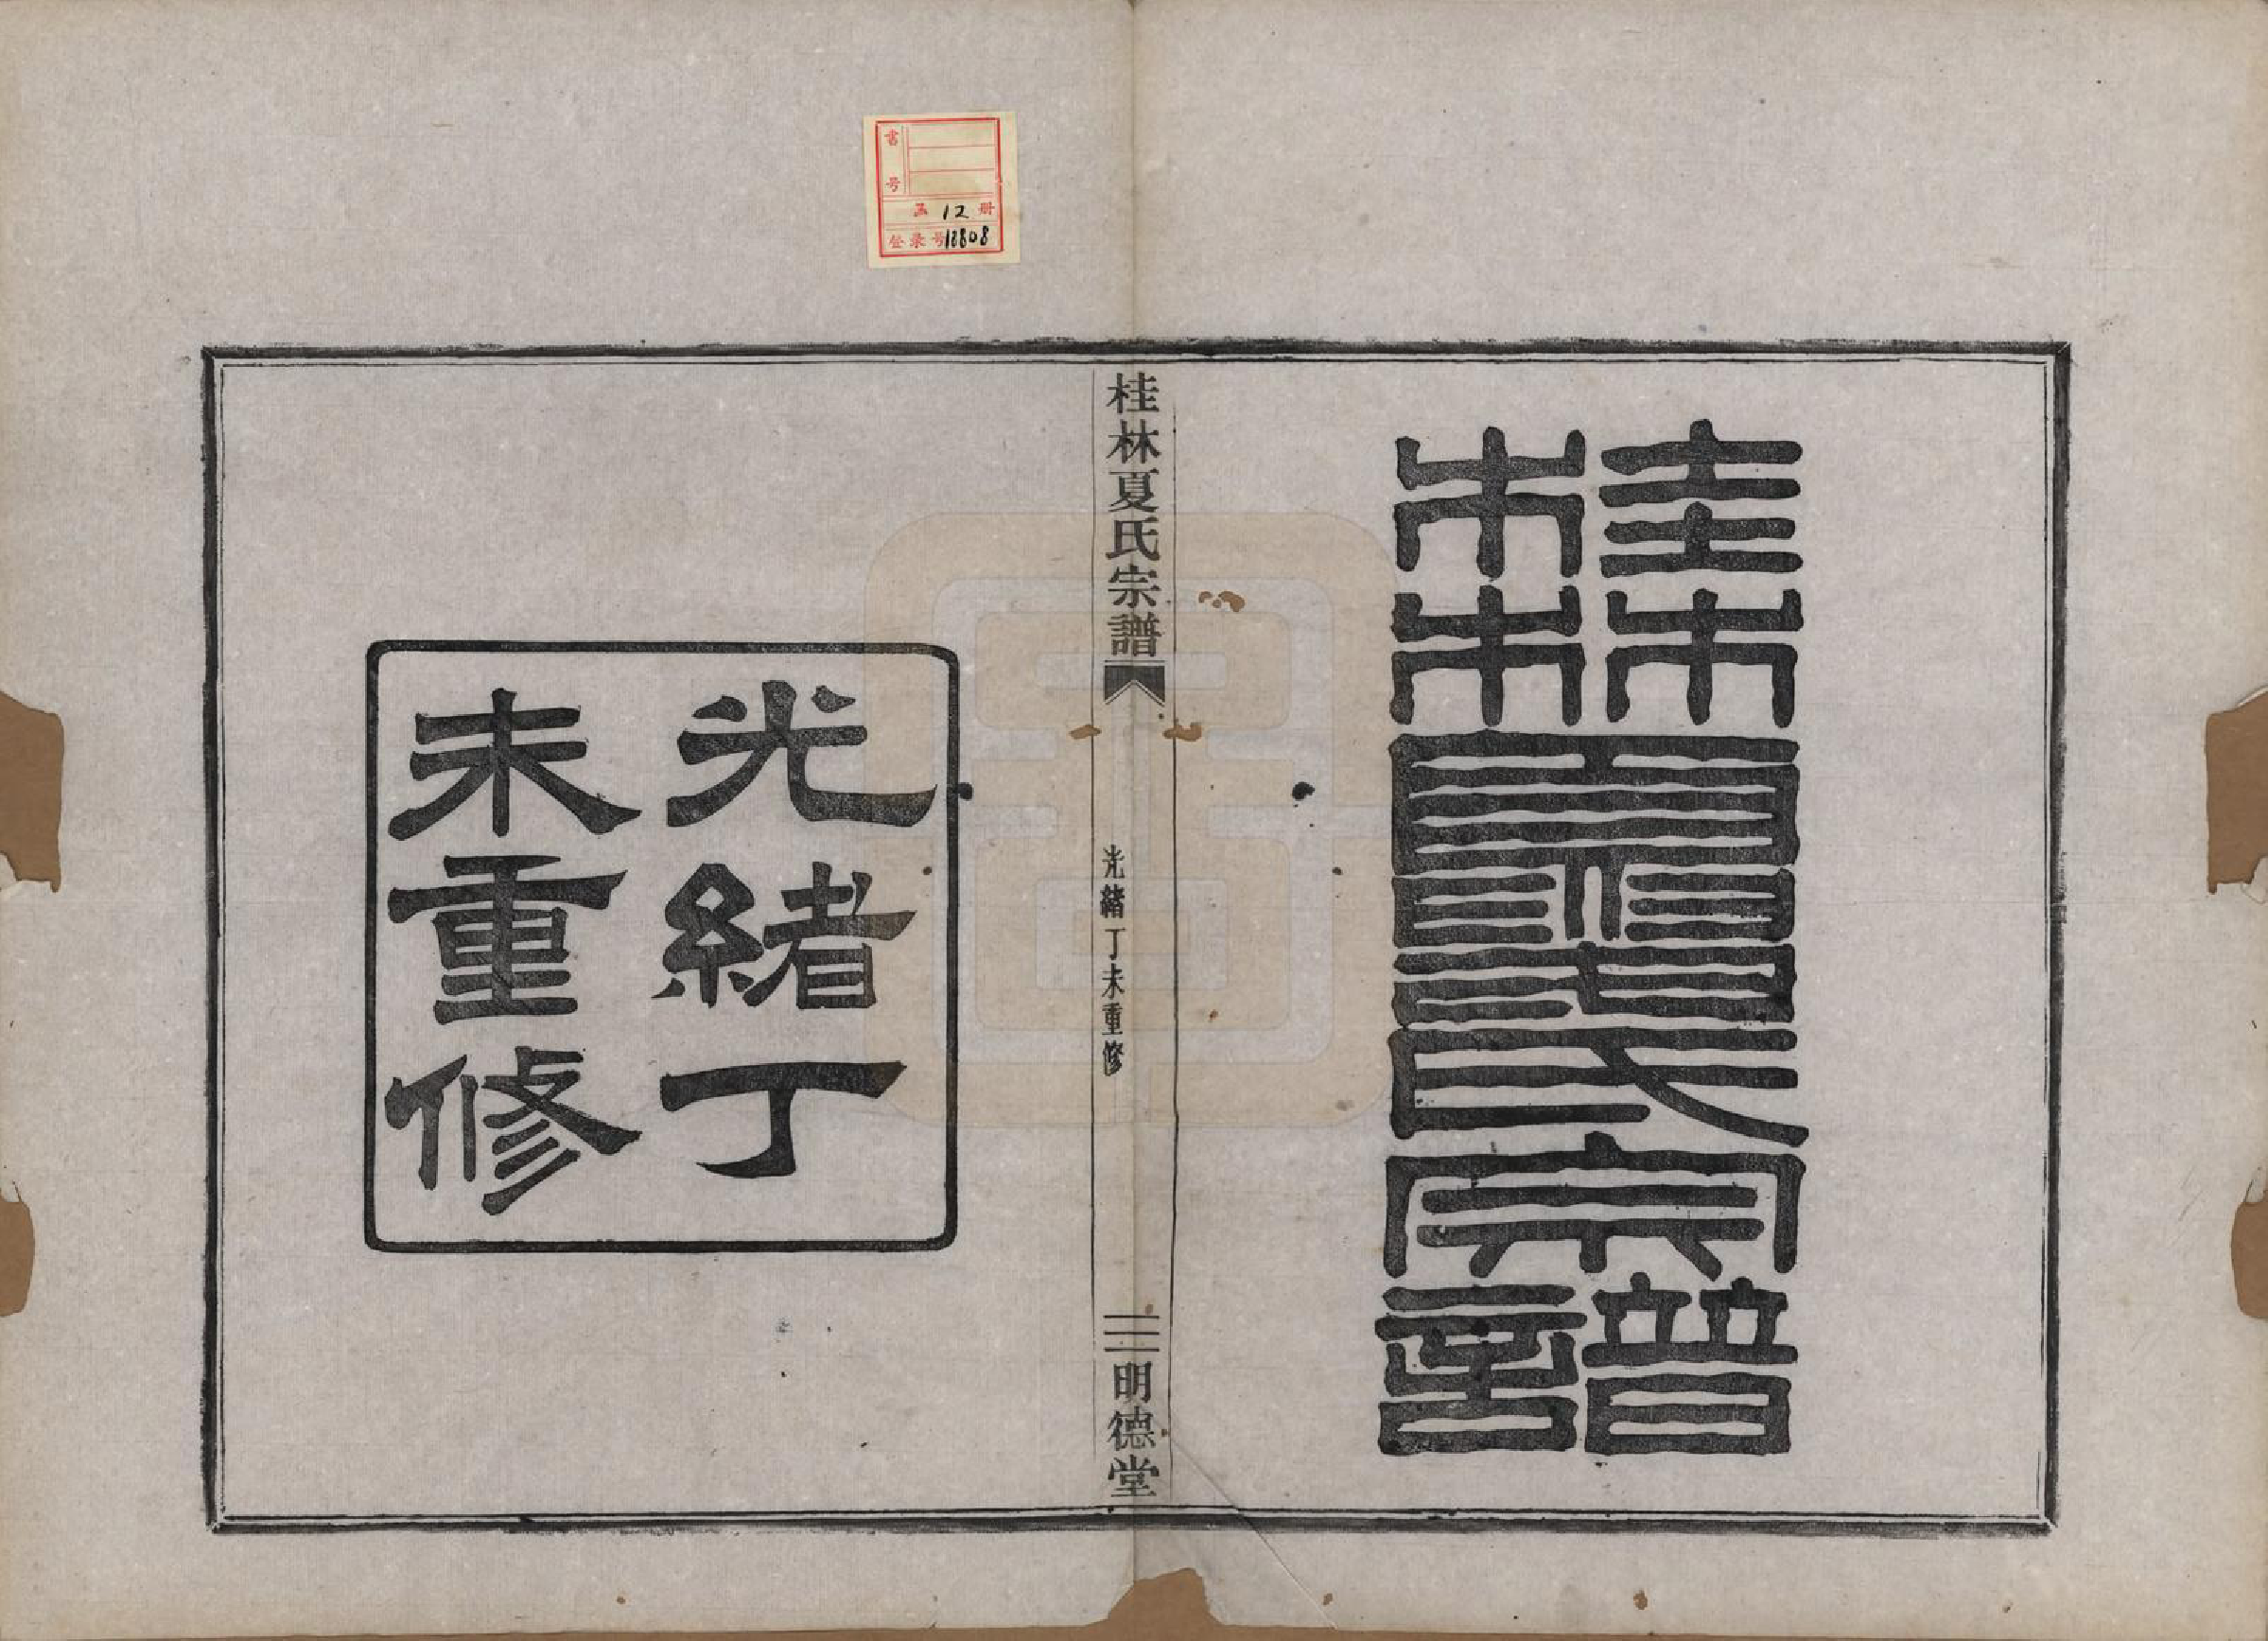 桂林夏氏宗譜
桂林夏氏宗譜
光緒丁未重修
明德堂
光緒丁
未重修
書号
函 12 册
登录号18808